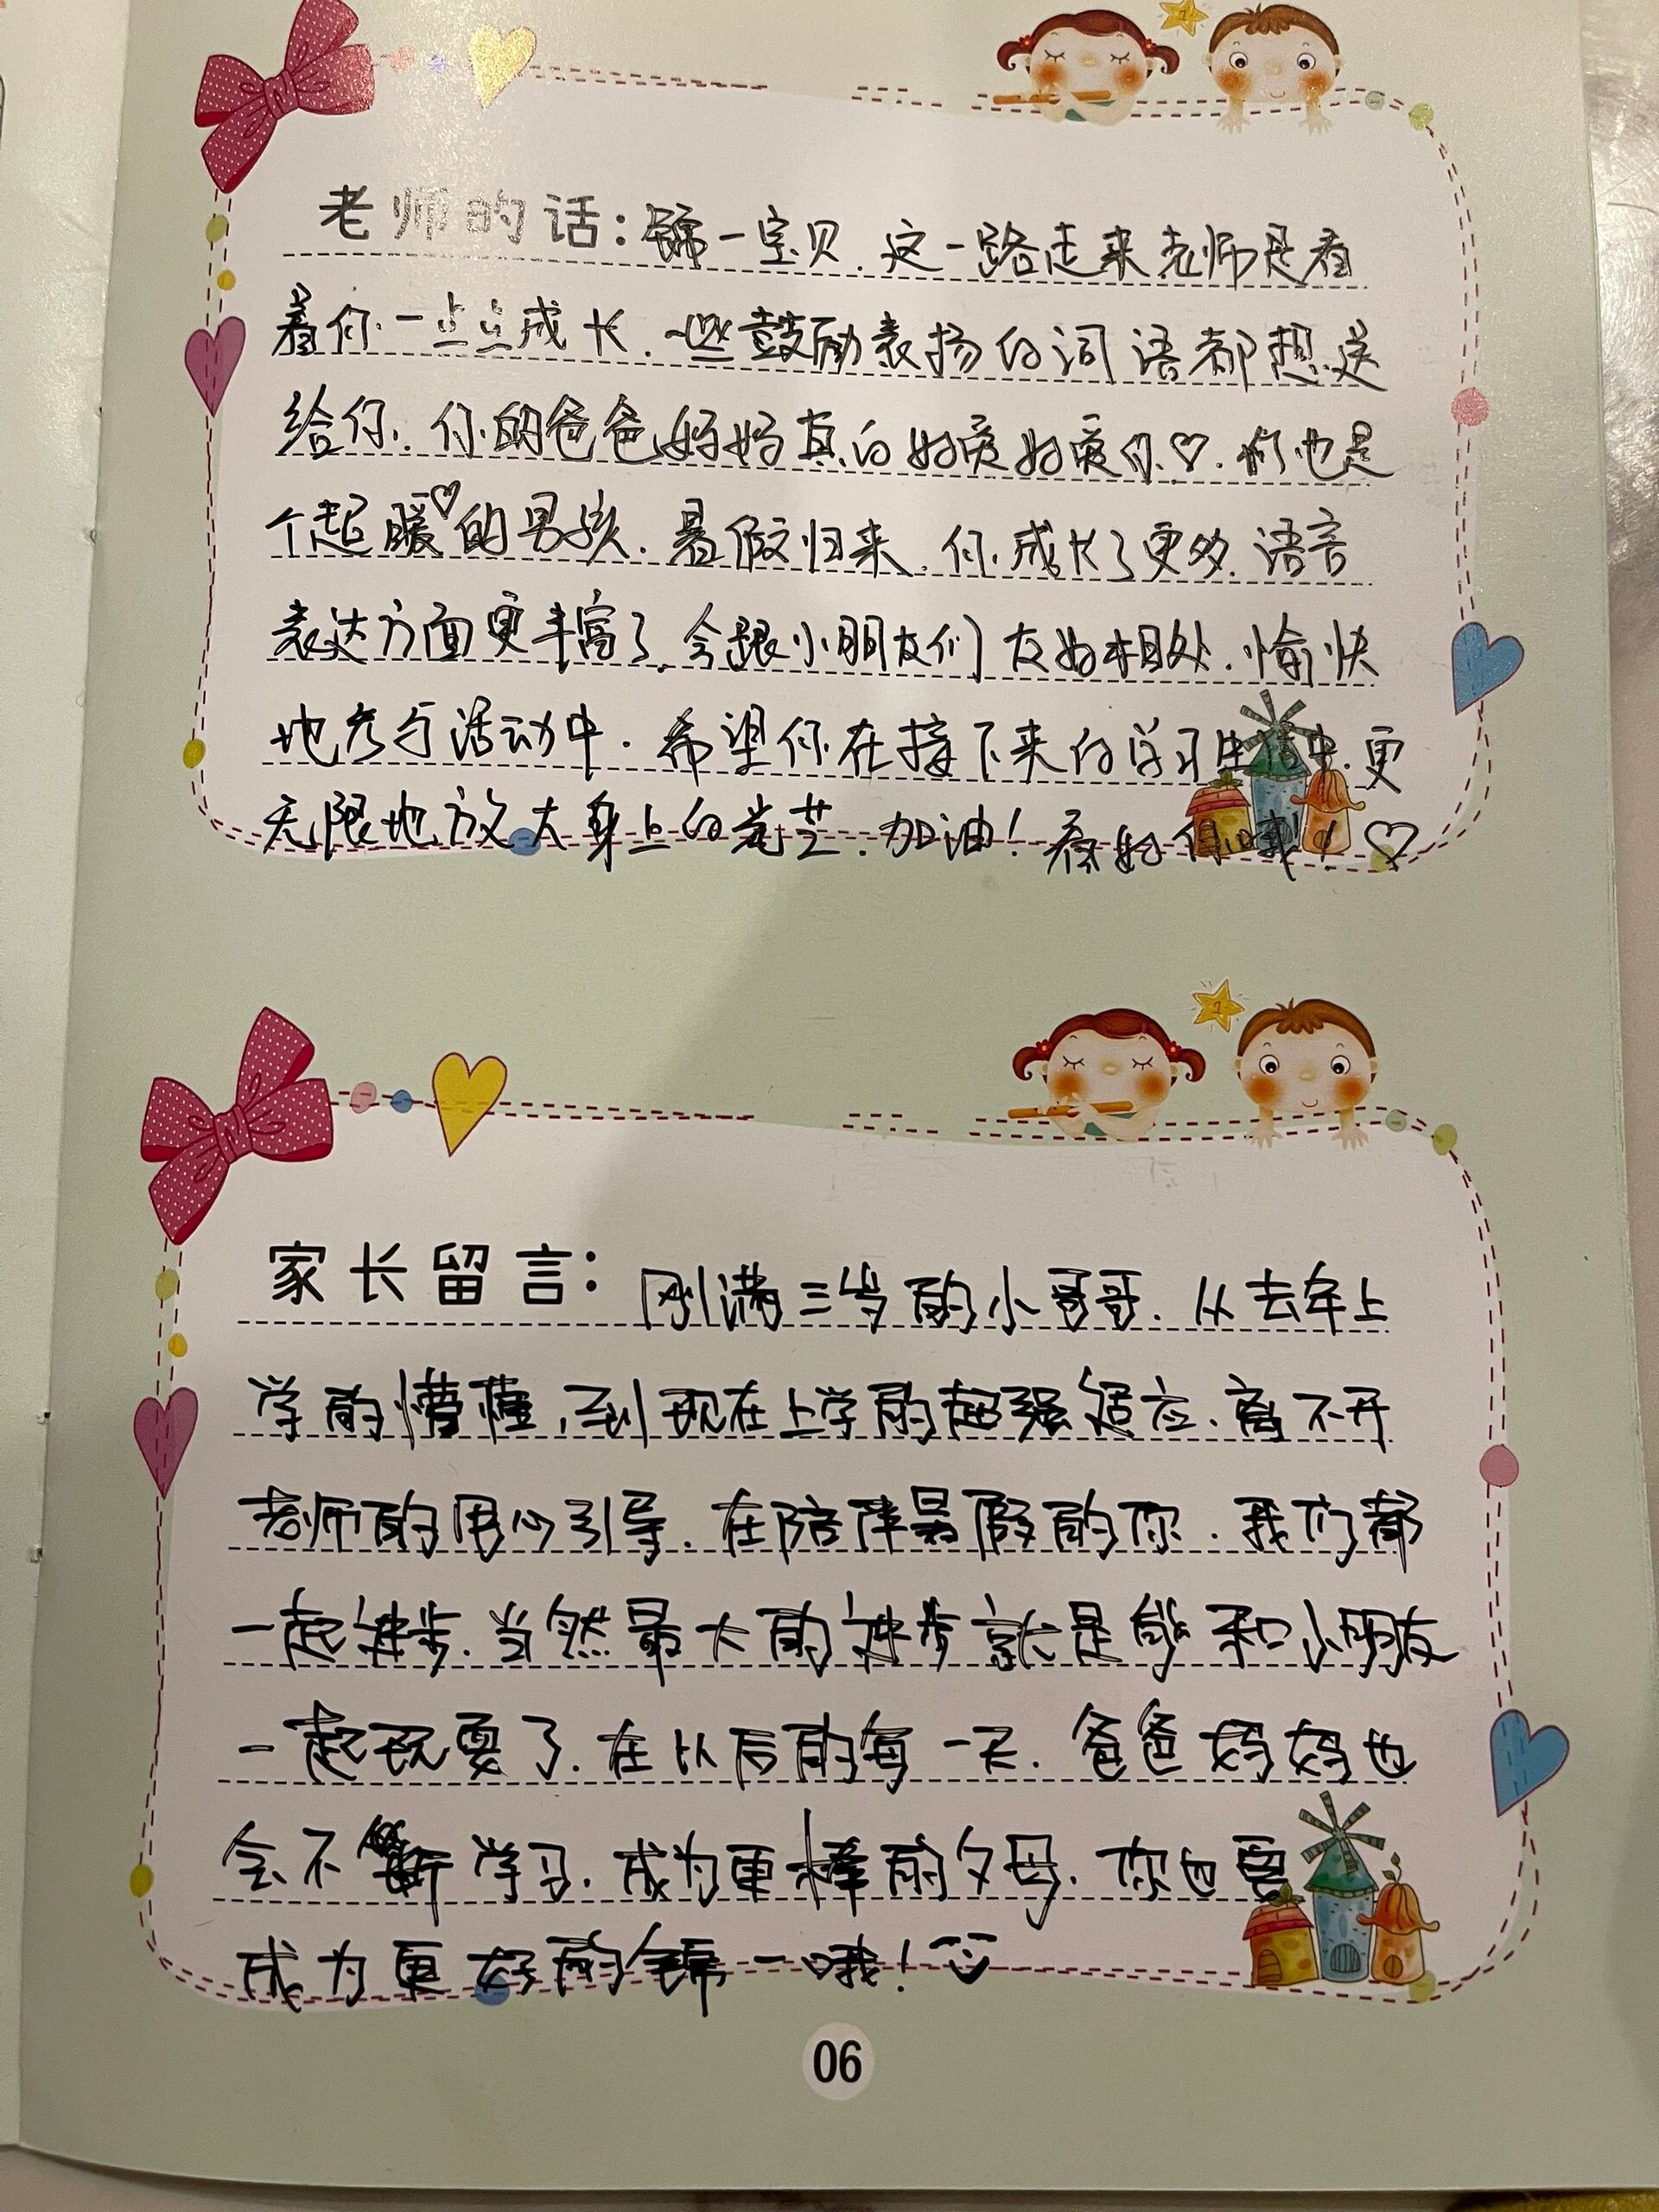 老师的话：锦一宝贝.这一路走来老师是看
着你一点点成长.一些鼓励表扬的词语都想送
给你.你的爸爸妈妈真的好爱好爱你♡.你也是
个超暖♡的男孩.暑假归来.你成长了更多.语言
表达方面更丰富了.会跟小朋友们友好相处.愉快
地参与活动中.希望你在接下来的学习生活中.更
无限地放大身上的光芒.加油！看好你哦！♡
家长留言：刚满三岁的小哥哥.从去年上
学的懵懂,到现在上学的超强适应.离不开
老师的用心引导.在陪伴暑假的你.我们都
一起进步.当然最大的进步就是能和小朋友
一起玩耍了.在以后的每一天.爸爸妈妈也
会不断学习.成为更棒的父母.你也要
成为更好的锦一哦！
06